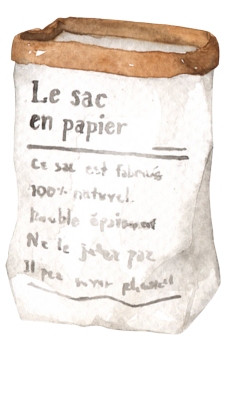 Le sac
en papier
Ce sac est fabriqué
100% naturel.
Double épaisseur
Ne le jeter pas
Il peu servir plusieurs